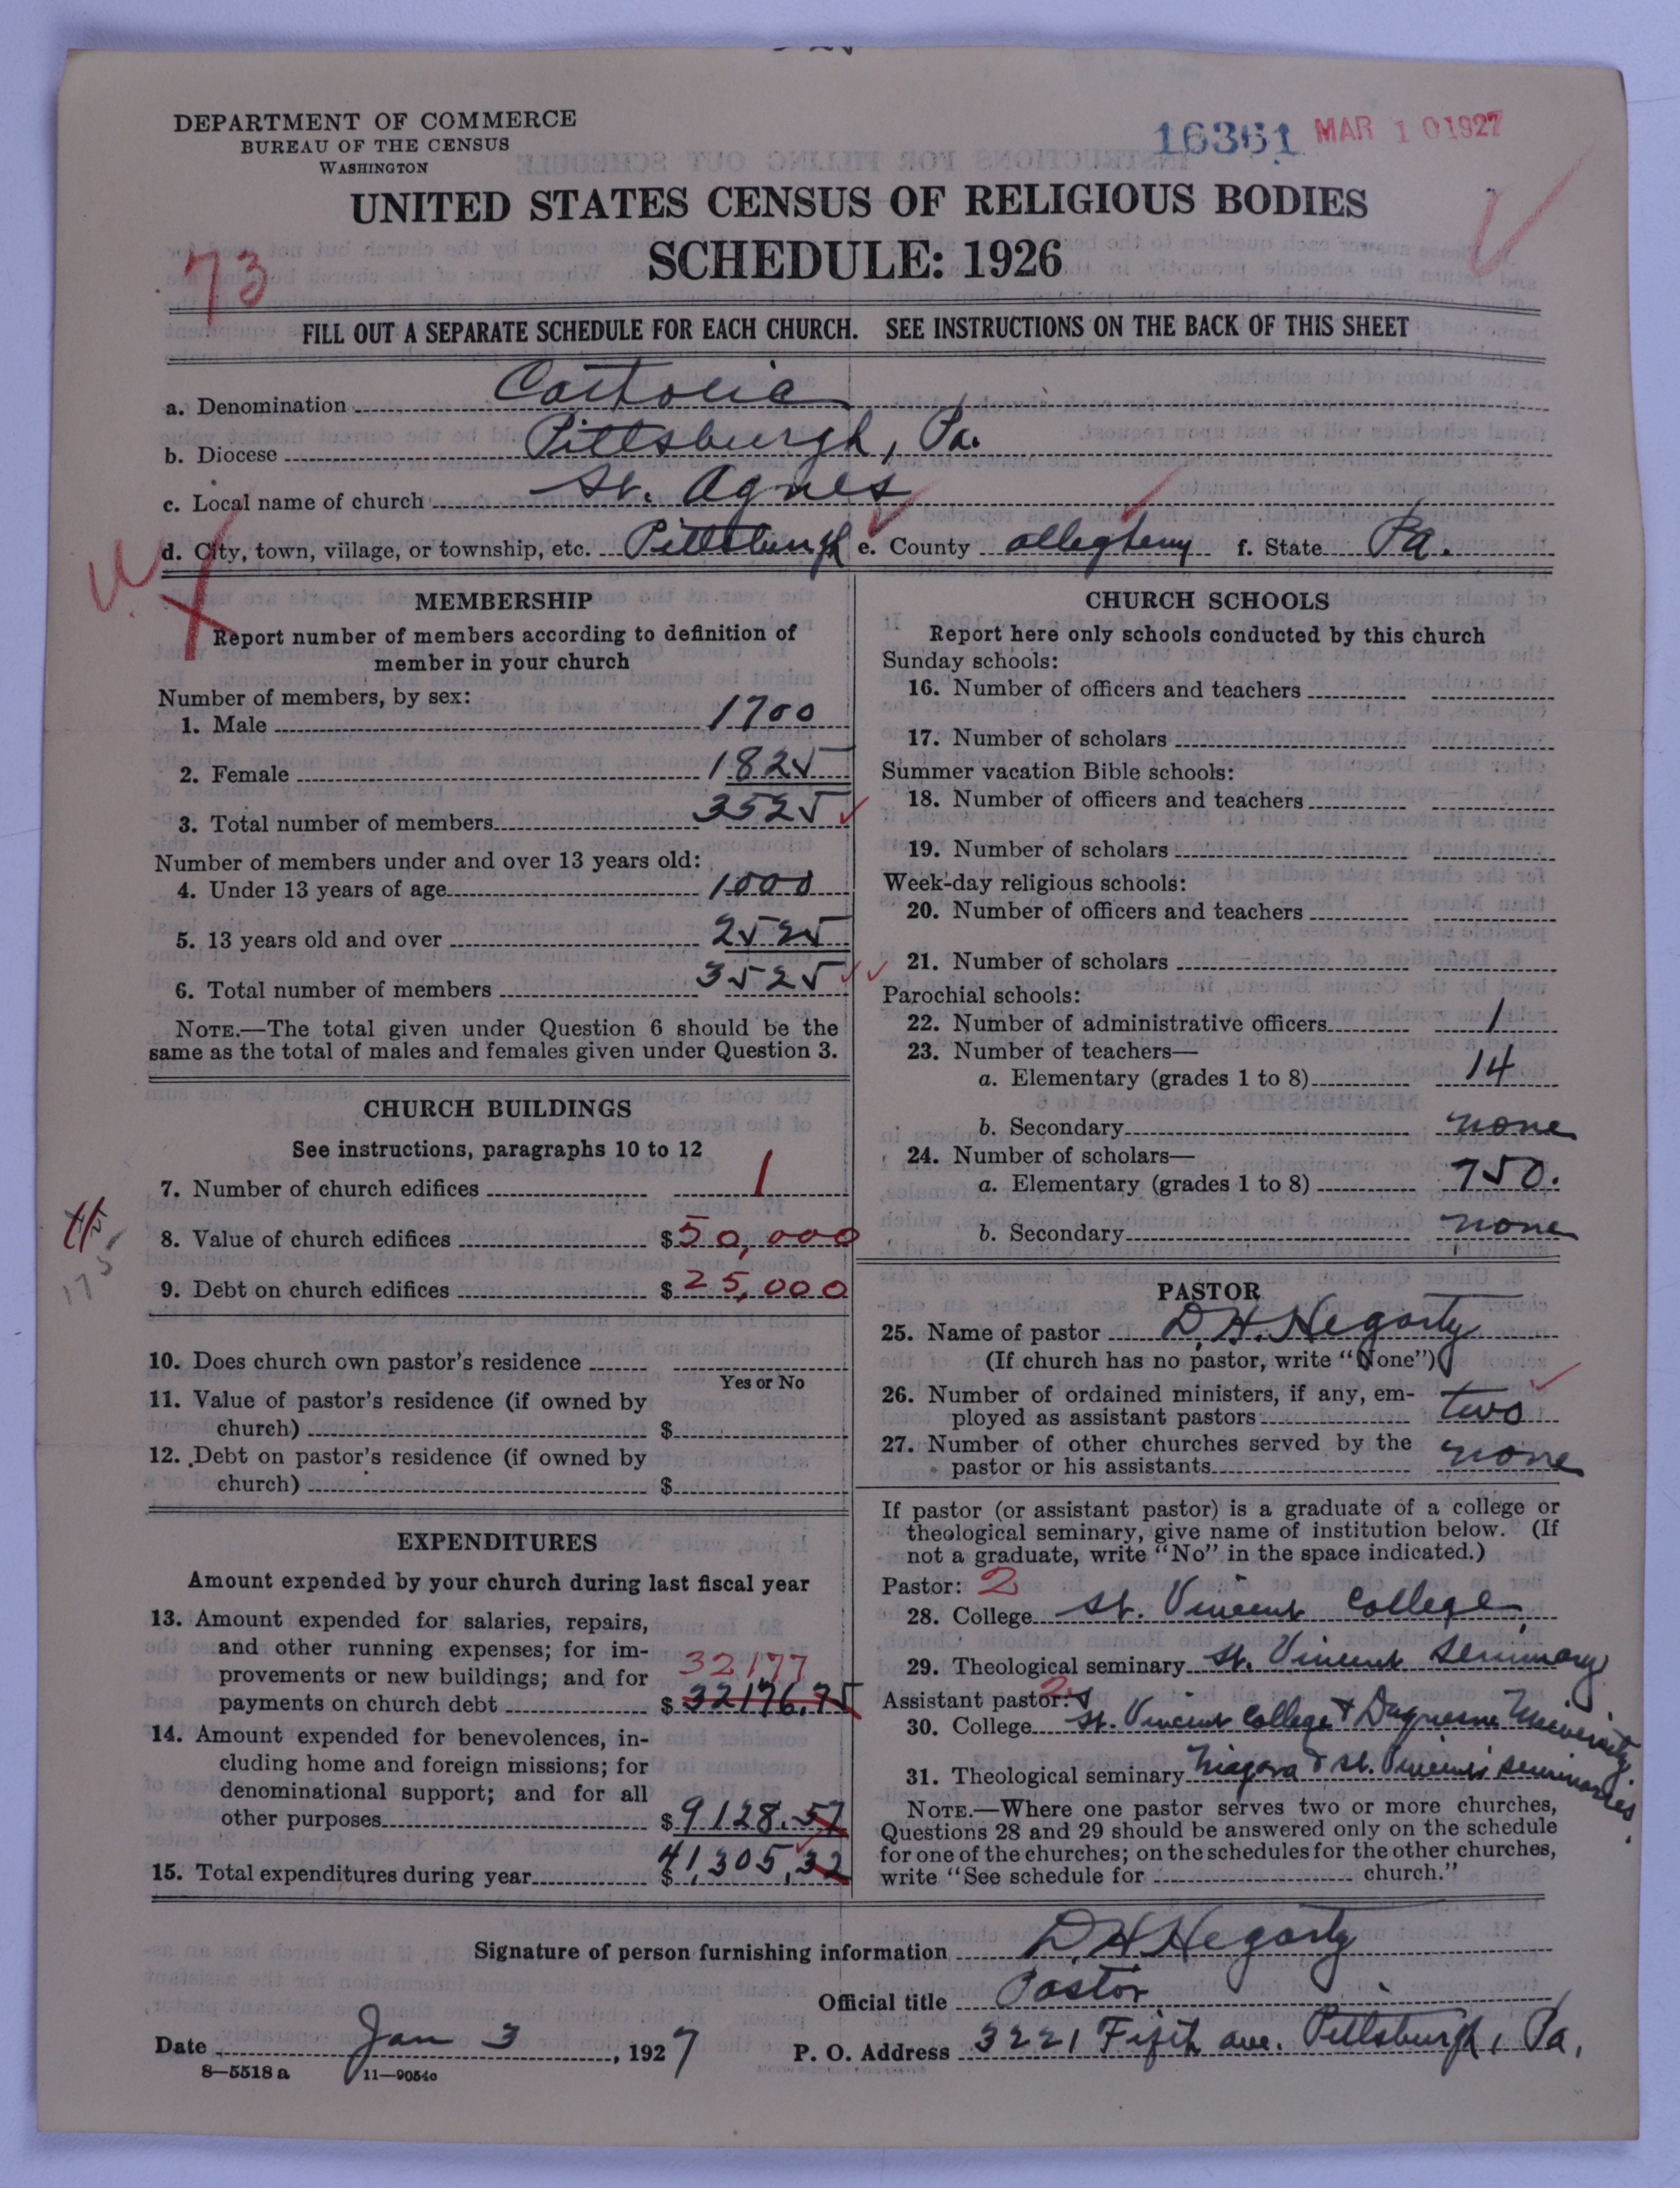 DEPARTMENT OF COMMERCE
BUREAU OF THE CENSUS
WASHINGTON
16361 MAR 10 1927
UNITED STATES CENSUS OF RELIGIOUS BODIES
SCHEDULE: 1926
73
FILL OUT A SEPARATE SCHEDULE FOR EACH CHURCH. SEE INSTRUCTIONS ON THE BACK OF THIS SHEET
a. Denomination Catholic
b. Diocese Pittsburgh, Pa.
c. Local name of church St. Agnes
d. City, town, village, or township, etc. Pittsburgh e. County Allegheny f. State Pa.
MEMBERSHIP
Report number of members according to definition of
member in your church
Number of members, by sex:
1. Male 1700
2. Female 1825
3. Total number of members 3525
Number of members under and over 13 years old:
4. Under 13 years of age 1000
5. 13 years old and over 2525
6. Total number of members 3525
NOTE.—The total given under Question 6 should be the
same as the total of males and females given under Question 3.
CHURCH BUILDINGS
See instructions, paragraphs 10 to 12
7. Number of church edifices 1
8. Value of church edifices $50,000
9. Debt on church edifices $25,000
175
10. Does church own pastor's residence
Yes or No
11. Value of pastor's residence (if owned by
church) $
12. Debt on pastor's residence (if owned by
church) $
EXPENDITURES
Amount expended by your church during last fiscal year
13. Amount expended for salaries, repairs,
and other running expenses; for im-
provements or new buildings; and for 32177
payments on church debt $32176.75
14. Amount expended for benevolences, in-
cluding home and foreign missions; for
denominational support; and for all
other purposes $9128.57
15. Total expenditures during year $41,305,32
CHURCH SCHOOLS
Report here only schools conducted by this church
Sunday schools:
16. Number of officers and teachers
17. Number of scholars
Summer vacation Bible schools:
18. Number of officers and teachers
19. Number of scholars
Week-day religious schools:
20. Number of officers and teachers
21. Number of scholars
Parochial schools:
22. Number of administrative officers 1
23. Number of teachers—
a. Elementary (grades 1 to 8) 14
b. Secondary none
24. Number of scholars—
a. Elementary (grades 1 to 8) 750.
b. Secondary none
PASTOR
25. Name of pastor D. H. Hegarty
(If church has no pastor, write "None")
26. Number of ordained ministers, if any, em-
ployed as assistant pastors two
27. Number of other churches served by the
pastor or his assistants none
If pastor (or assistant pastor) is a graduate of a college or
theological seminary, give name of institution below. (If
not a graduate, write "No" in the space indicated.)
Pastor: 2
28. College St. Vincent College
29. Theological seminary St. Vincent Seminary
Assistant pastor: 2
30. College St. Vincent College & Duquesne University
31. Theological seminary Niagara & St. Vincent's Seminaries.
NOTE.—Where one pastor serves two or more churches,
Questions 28 and 29 should be answered only on the schedule
for one of the churches; on the schedules for the other churches,
write "See schedule for church."
Signature of person furnishing information D H Hegarty
Official title Pastor
Date Jan 3, 1927 P. O. Address 3221 Fifth ave. Pittsburgh, Pa.
8—5518 a 11—9054o